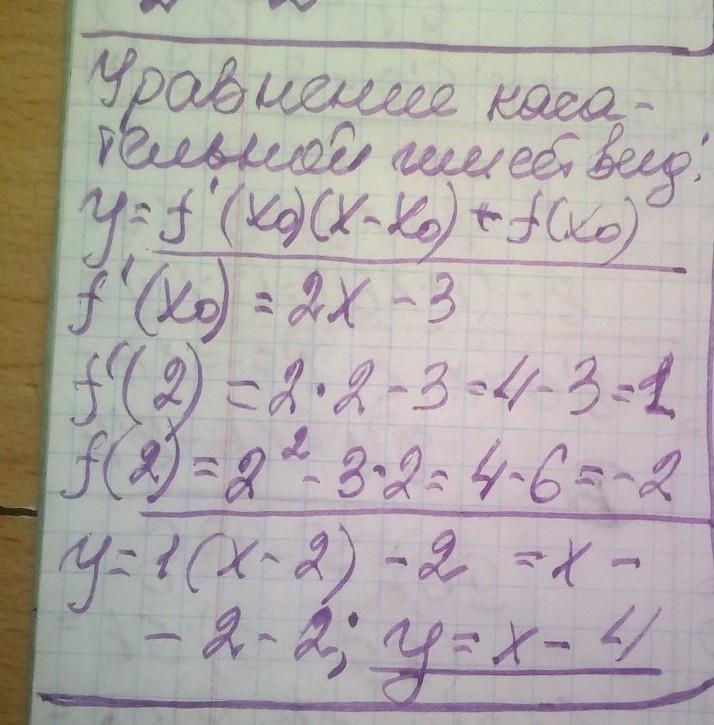 Уравнение каса-
тельной имеет вид:
y = f'(x₀)(x - x₀) + f(x₀)
f'(x₀) = 2x - 3
f'(2) = 2·2 - 3 = 4 - 3 = 1
f(2) = 2² - 3·2 = 4 - 6 = -2
y = 1(x - 2) - 2 = x -
- 2 - 2; y = x - 4